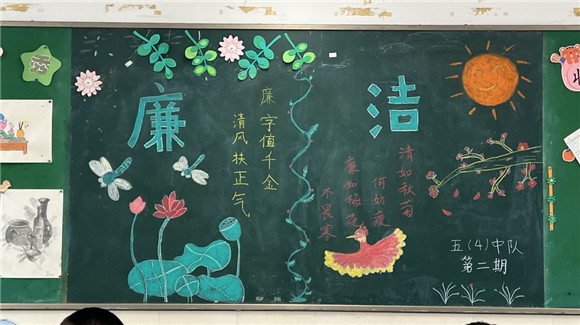 廉
洁
廉字值千金
清风扶正气
清如秋菊
何妨瘦
廉如梅花
不畏寒
五(4)中队
第二期